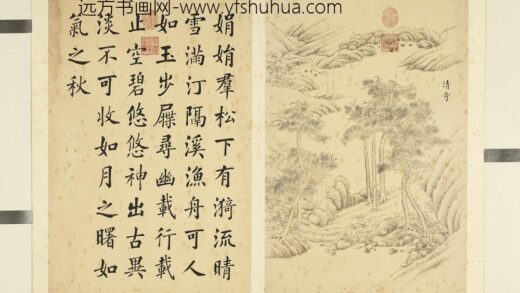 远方书画网-www.yfshuhua.com
清奇
娟娟羣松下有漪流晴
雪滿汀隔溪漁舟可人
如玉步屧尋幽載行載
止空碧悠悠神出古異
淡不可收如月之曙如
氣之秋